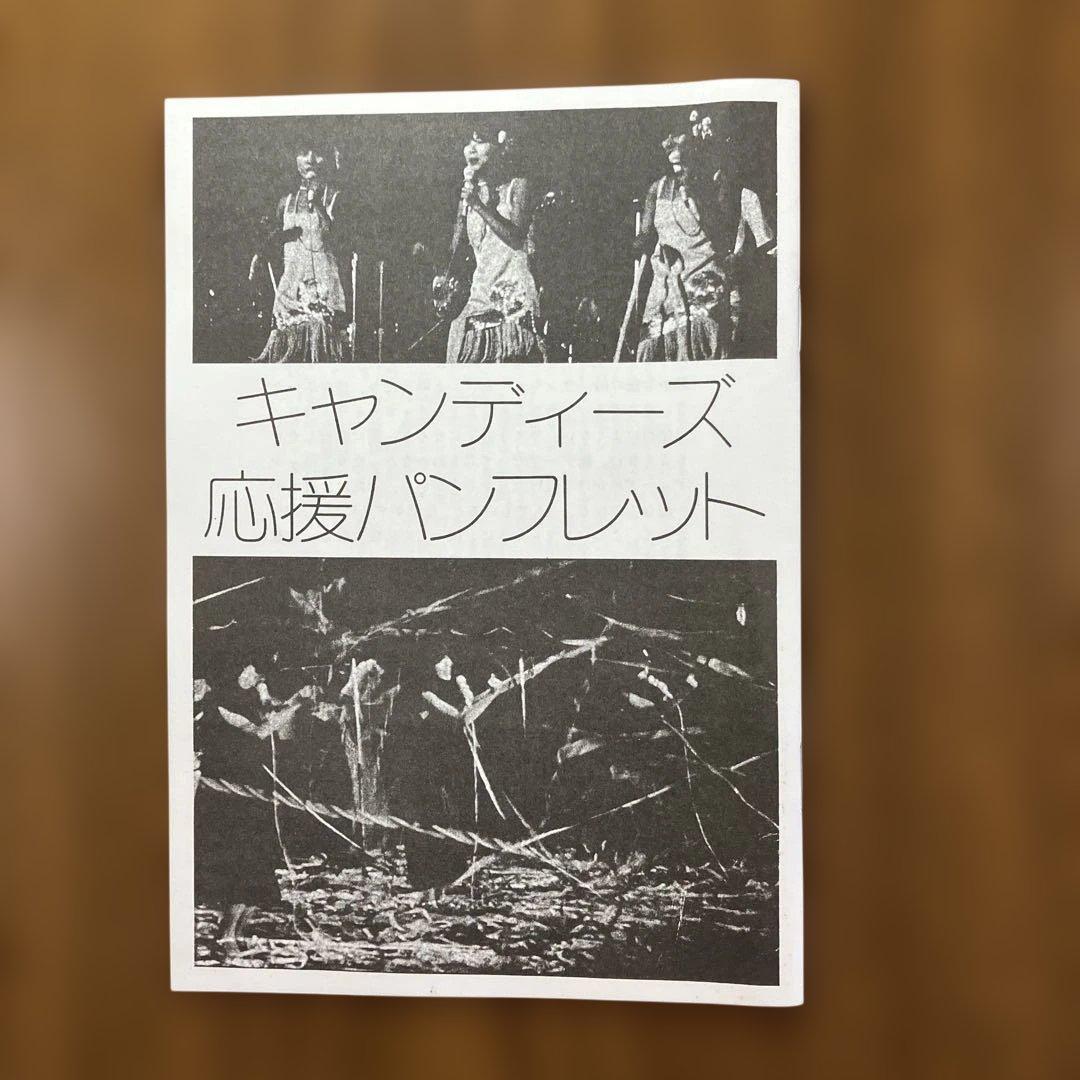 キャンディーズ
応援パンフレット